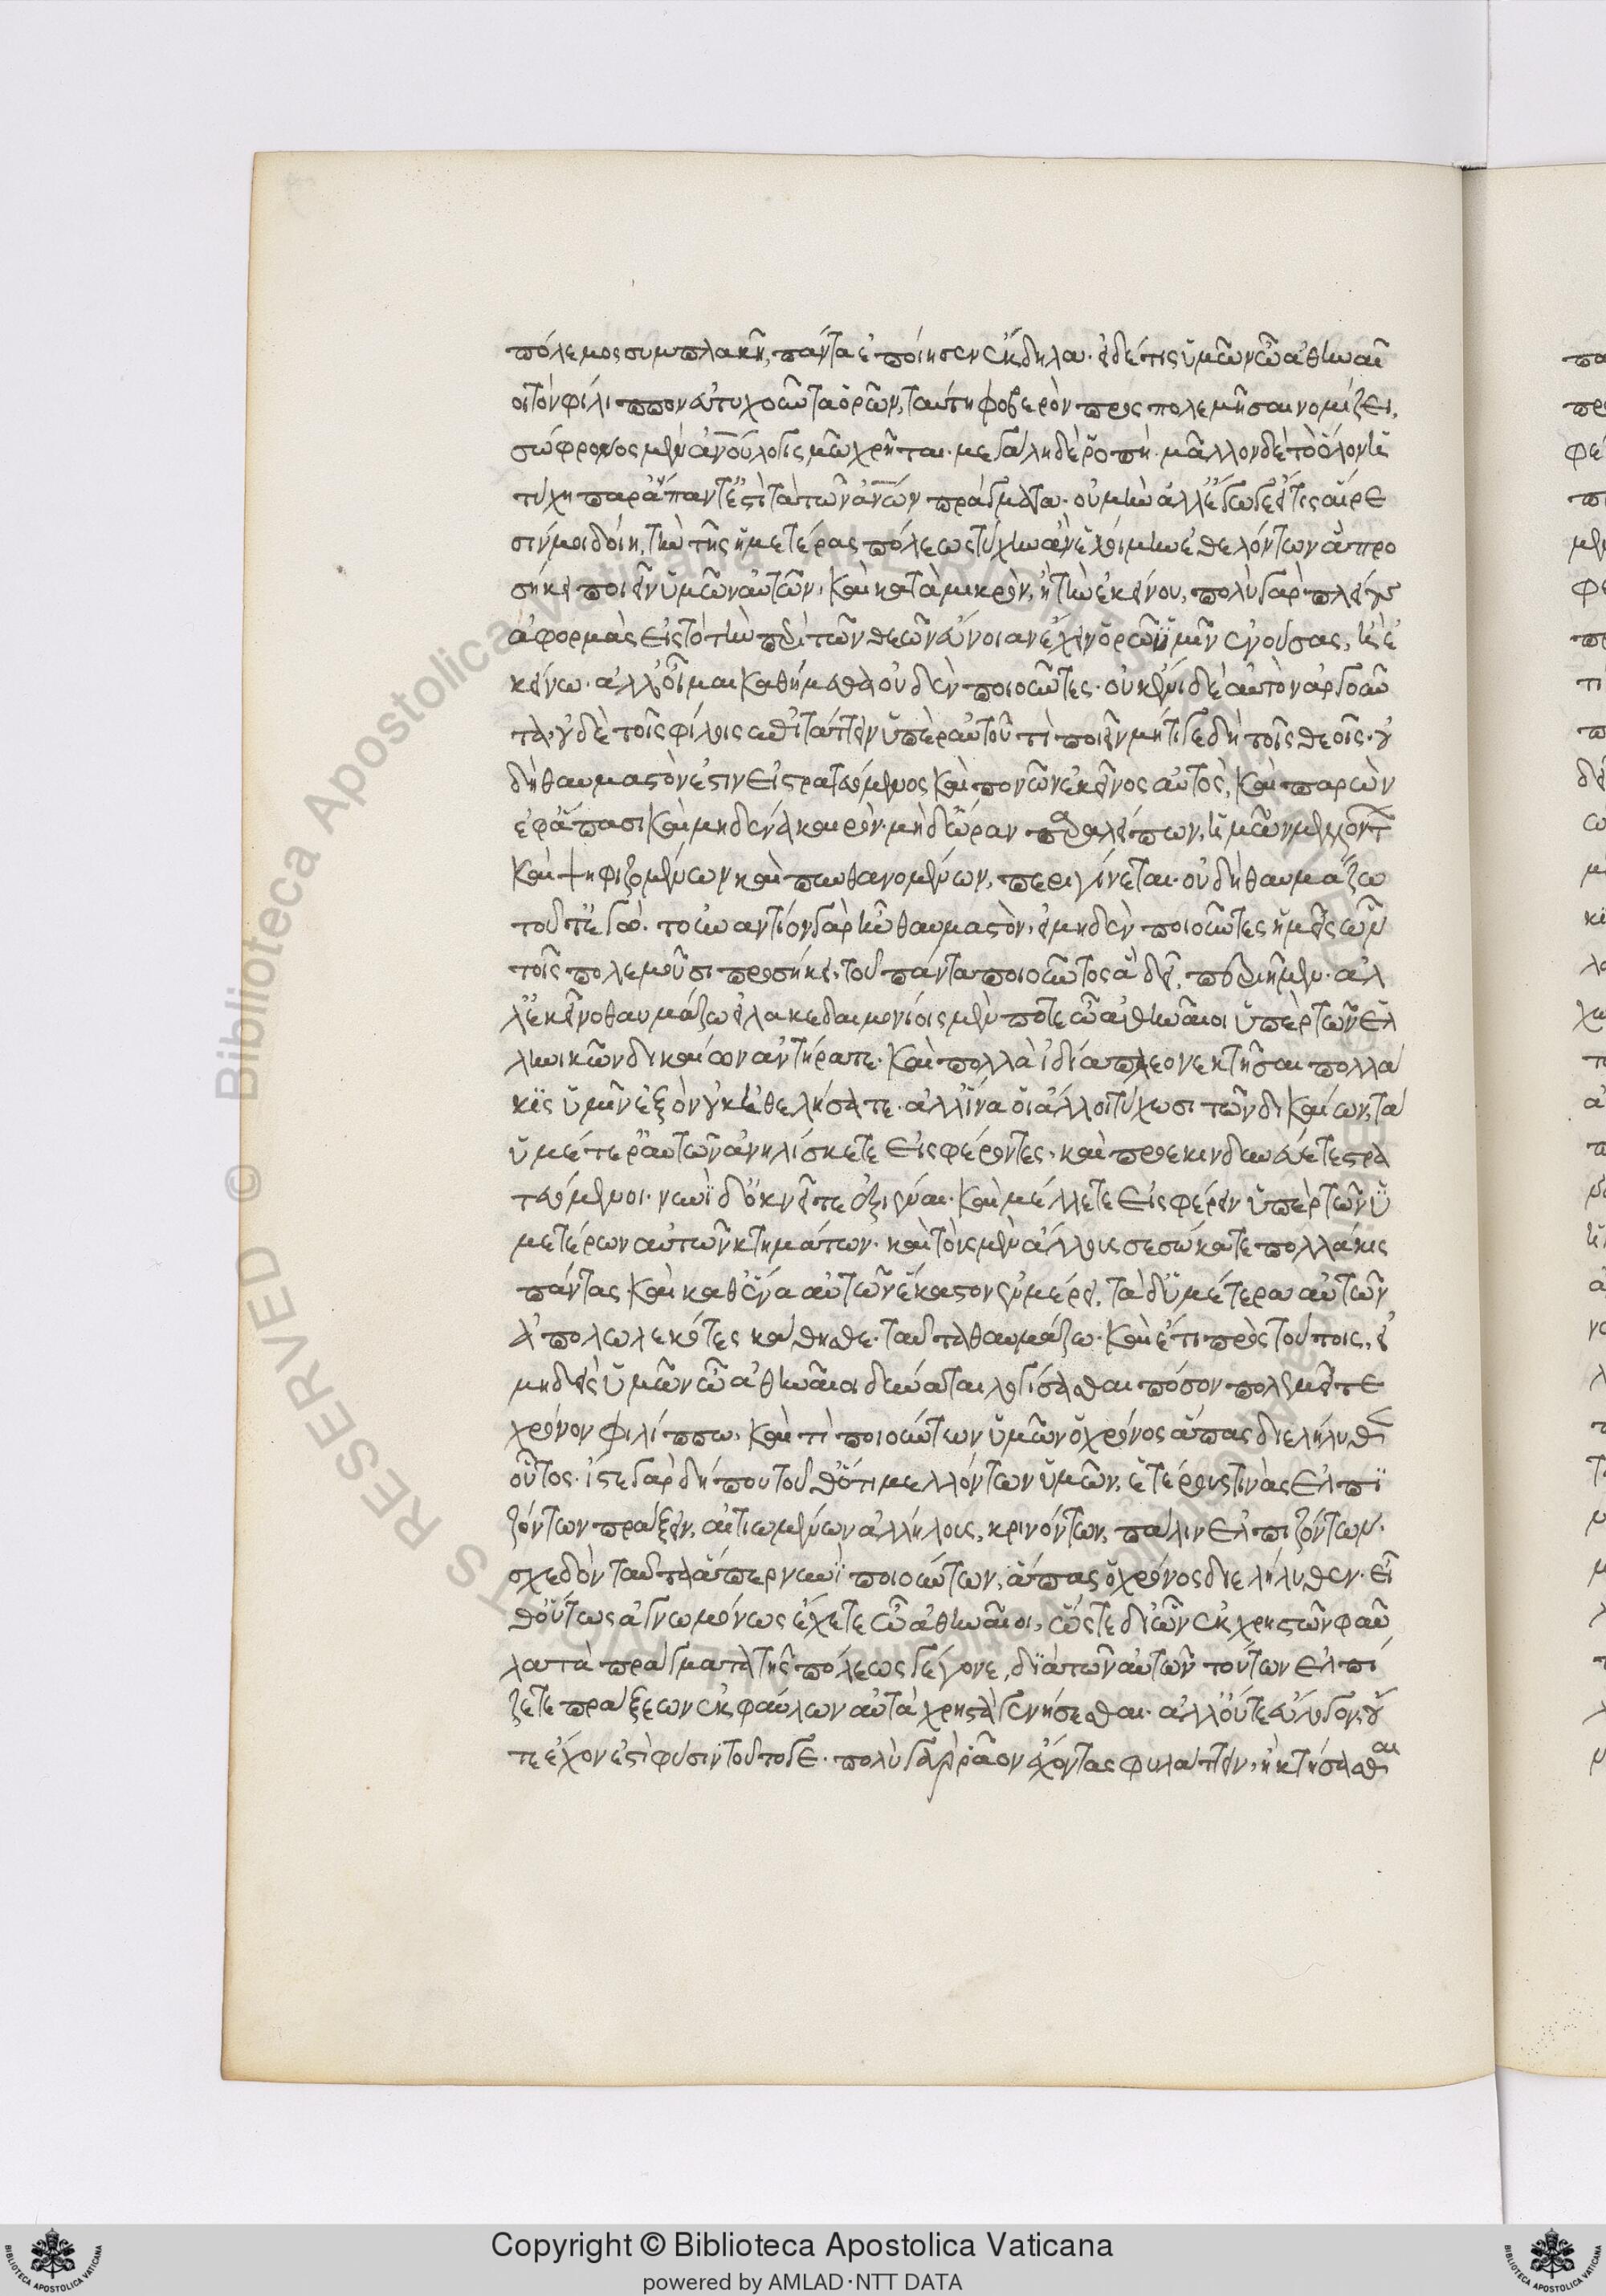 πόλεμος συμπλακῆ, πάντα ἐποίησεν ἔκδηλα· εἰ δέ τις ὑμῶν ὦ ἀθηναῖ
οι τὸν φίλιππον εὐτυχοῦντα ὁρῶν, ταύτη φοβερὸν προσπολεμῆσαι νομίζει,
σώφρονος μὲν ἀνοῦ λογισμῶ χρῆται· μεγάλη δὲ ῥοπὴ· μᾶλλον δὲ τὸ ὅλον ἡ
τύχη παρ' ἅπαντ' ἐστὶ τὰ τῶν ἀνων πράγματα· οὐ μὴν ἀλλ' ἔγωγε εἴ τις αἵρε
σίν μοι δοίη, τὴν τῆς ἡμετέρας πόλεως τύχην ἂν ἑλοίμην ἐθελόντων ἃ προ
σήκει ποιεῖν ὑμῶν αὐτῶν, καὶ κατὰ μικρὸν, ἢ τὴν ἐκείνου, πολὺ γὰρ πλείους
ἀφορμὰς εἰς τὸ τὴν παρὰ τῶν θεῶν εὔνοιαν ἔχειν ὁρῶ ὑμῖν ἐνούσας, ἢ ἐ
κείνω· ἀλλ' οἶμαι καθήμεθα οὐδὲν ποιοῦντες· οὐκ ἔνι δὲ αὐτὸν ἀργοῦν
τα, οὐδὲ τοῖς φίλοις ἐπιτάττειν ὑπὲρ αὐτοῦ τὶ ποιεῖν μή τί γε δὴ τοῖς θεοῖς· οὐ
δὴ θαυμαστὸν ἐστιν εἰ στρατευόμενος καὶ πονῶν ἐκεῖνος αὐτὸς, καὶ παρὼν
ἐφ' ἅπασι καὶ μηδένα καιρὸν· μηδ' ὥραν παραλείπων, ἡμῶν μελλόντ
καὶ ψηφιζομένων καὶ πυνθανομένων, περιγίνεται· οὐ δὴ θαυμάζω
τοῦτ' ἐγώ· τοὐναντίον γὰρ ἦν θαυμαστὸν, εἰ μηδὲν ποιοῦντες ἡμεῖς ὧν
τοῖς πολεμοῦσι προσήκει, τοῦ πάντα ποιοῦντος ἃ δεῖ, περιῆμεν· ἀλ
λ' ἐκεῖνο θαυμάζω εἰ λακεδαιμονίοις μὲν ποτε ὦ ἀθηναῖοι ὑπὲρ τῶν ἑλ
ληνικῶν δικαίων ἀντήρατε· καὶ πολλὰ ἰδία πλεονεκτῆσαι πολλά
κις ὑμῖν ἐξὸν οὐκ ἠθελήσατε· ἀλλ' ἵνα οἱ ἄλλοι τύχωσι τῶν δικαίων, τὰ
ὑμέτερ' αὐτῶν ἀνηλίσκετε εἰσφέροντες· καὶ προεκινδυνεύετε στρα
τευόμενοι· νυνὶ δ' ὀκνεῖτε ἐξιέναι· καὶ μέλλετε εἰσφέρειν ὑπὲρ τῶν ὑ
μετέρων αὐτῶν κτημάτων· καὶ τοὺς μὲν ἄλλους σεσώκατε πολλάκις
πάντας καὶ καθ' ἕνα αὐτῶν ἕκαστον ἐν μέρει, τὰ δ' ὑμέτερα αὐτῶν
ἀπολωλεκότες κάθησθε· ταῦτα θαυμάζω· καὶ ἔτι πρὸς τούτοις, εἰ
μηδεὶς ὑμῶν ὦ ἀθηναῖοι δύναται λογίσασθαι πόσον πολεμεῖτε
χρόνον φιλίππω, καὶ τί ποιούντων ὑμῶν ὁ χρόνος ἅπας διελήλυθ
οὗτος· ἴστε γὰρ δήπου τοῦθ' ὅτι μελλόντων ὑμῶν, ἑτέρους τινὰς ἐλπι
ζόντων πράξειν, αἰτιωμένων ἀλλήλους, κρινόντων, πάλιν ἐλπιζόντων,
σχεδὸν ταῦτα ἅπερ νυνὶ ποιούντων, ἅπας ὁ χρόνος διελήλυθεν· εἶ
θ' οὕτως ἀγνωμόνως ἔχετε ὦ ἀθηναῖοι, ὥστε δι' ὧν ἐκ χρηστῶν φαῦ
λα τὰ πράγματα τῆς πόλεως γέγονε, διὰ τῶν αὐτῶν τούτων ἐλπί
ζετε πράξεων ἐκ φαύλων αὐτὰ χρηστὰ γενήσεσθαι· ἀλλ' οὔτε εὔλογον, οὔ
τε ἔχον ἐστὶ φύσιν τοῦτό γε· πολὺ γὰρ ῥᾶον ἔχοντας φυλάττειν, ἢ κτήσασθαι